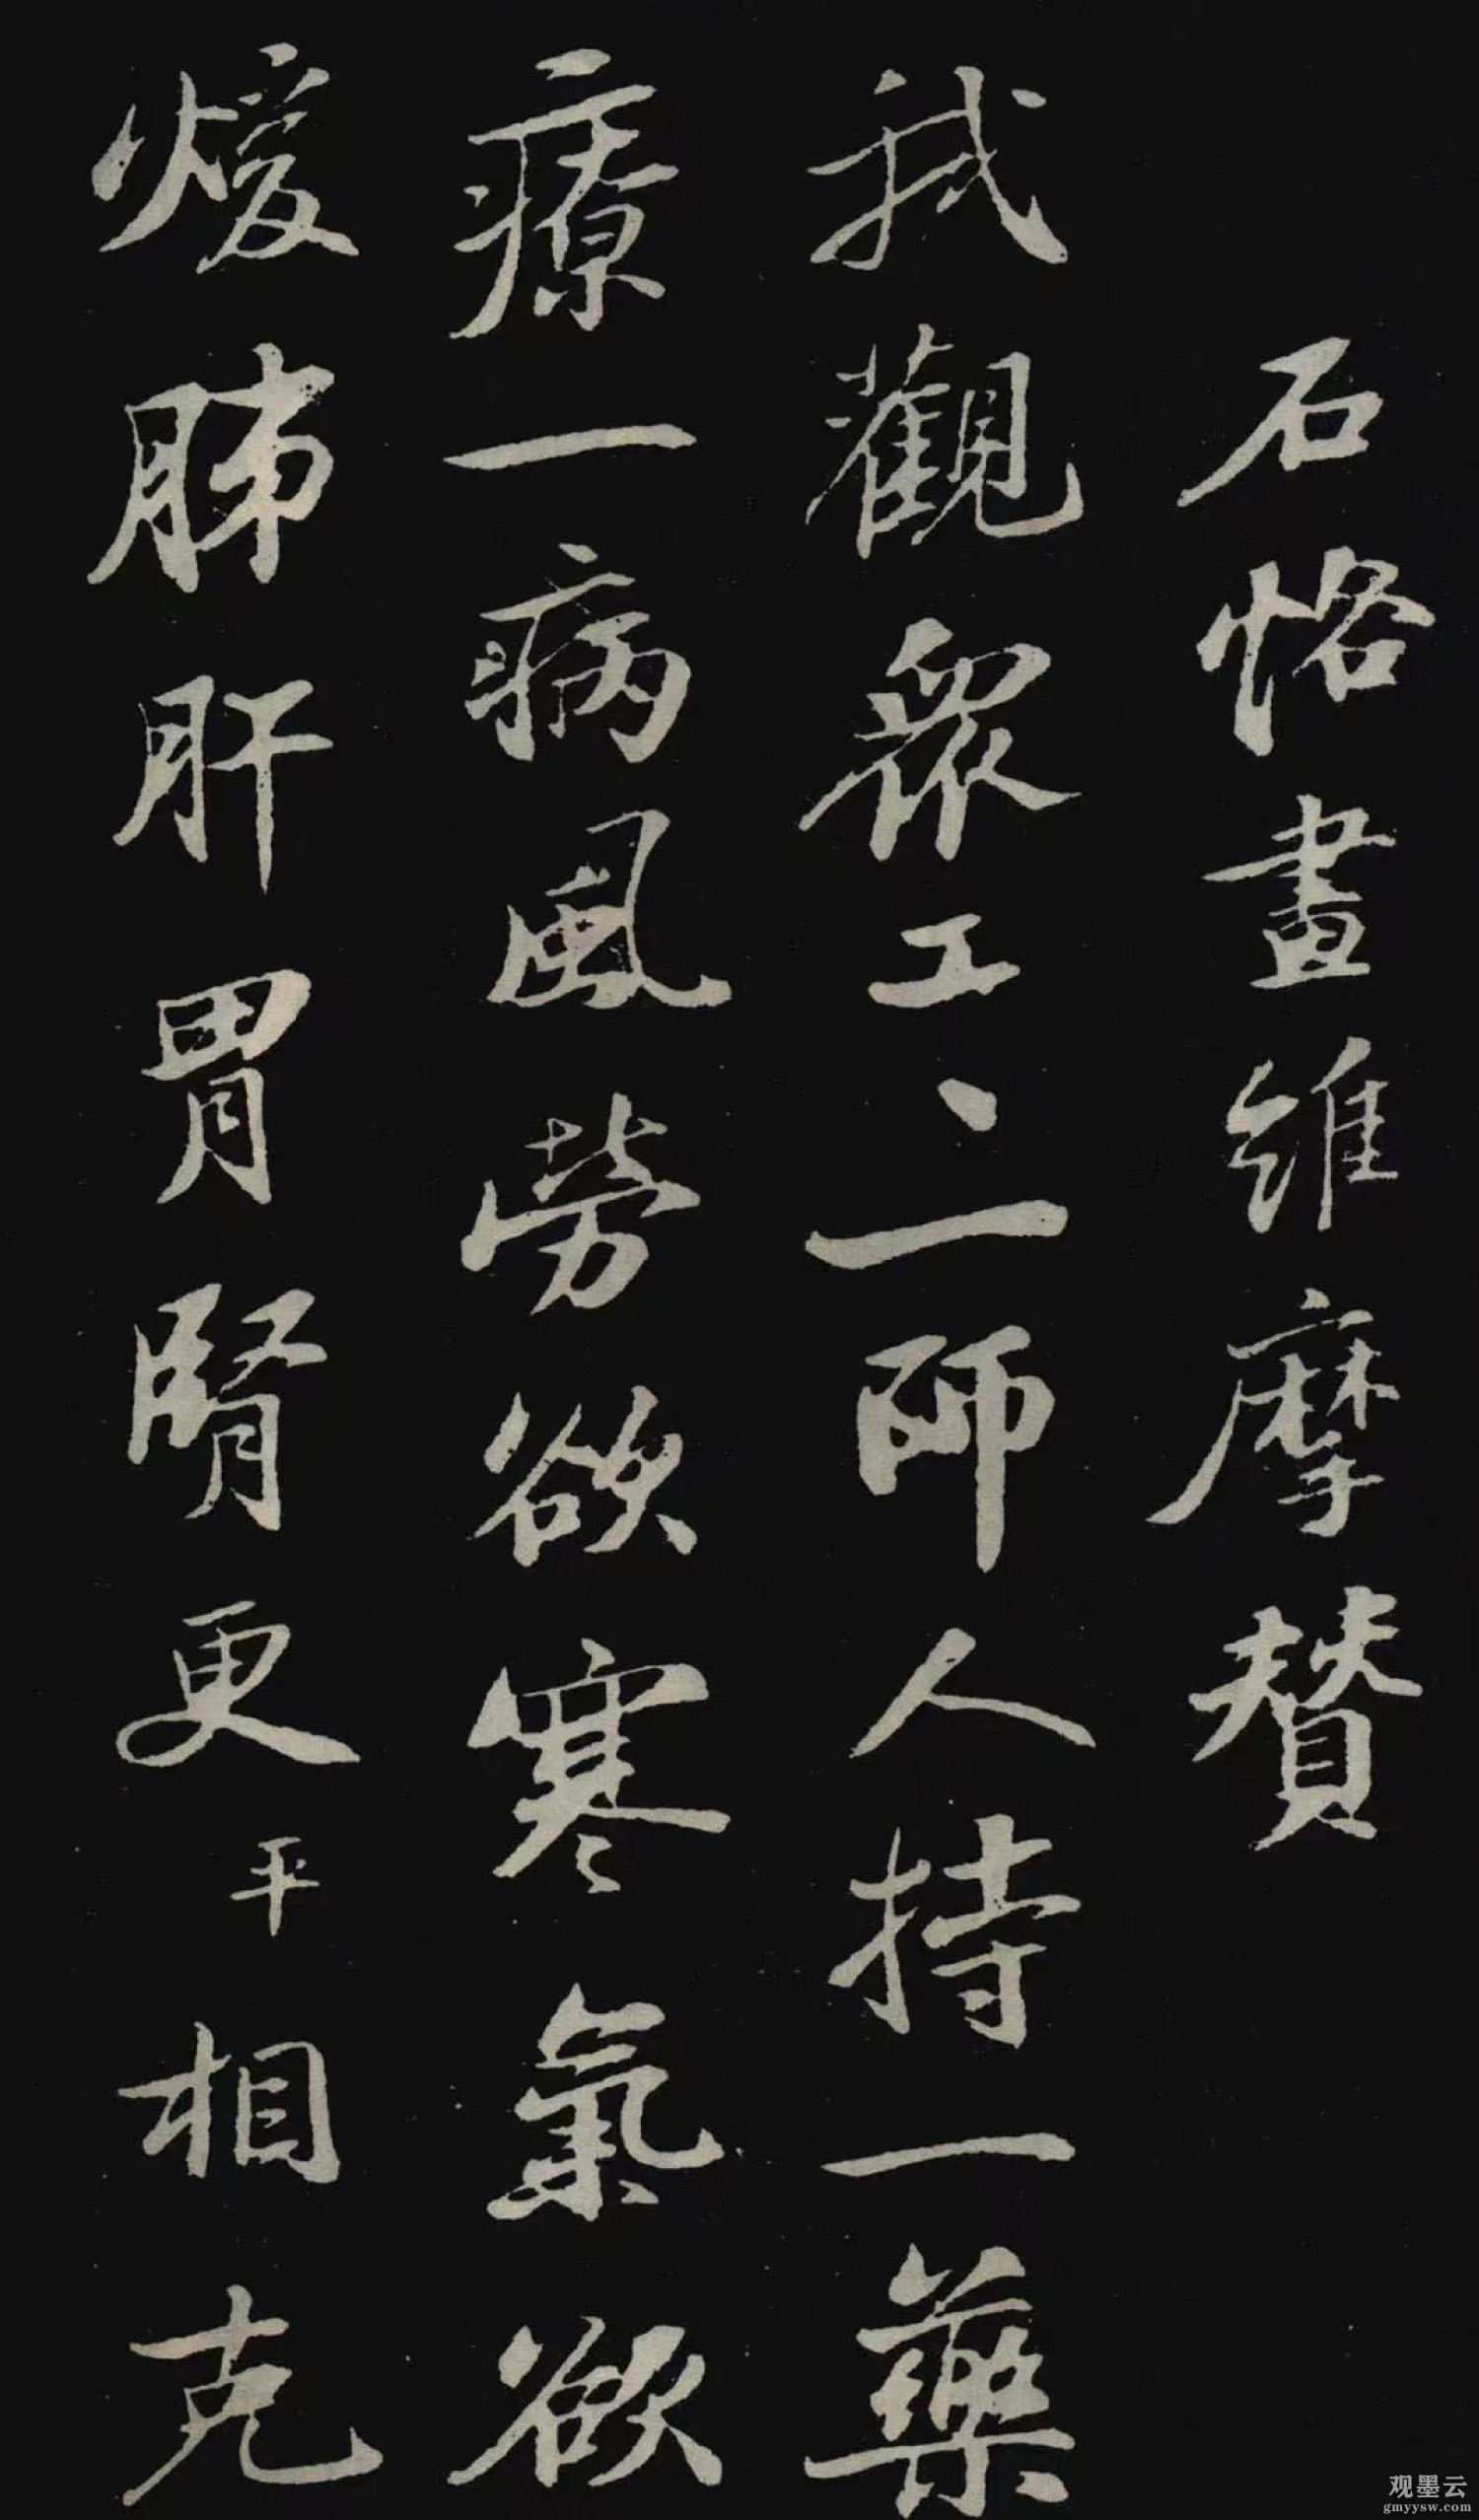 石恪畫維摩賛
我觀眾工〻一師人持一藥
療一病風勞欲寒氣欲
煖肺肝胃腎更平相克
观墨云
gmyysw.com